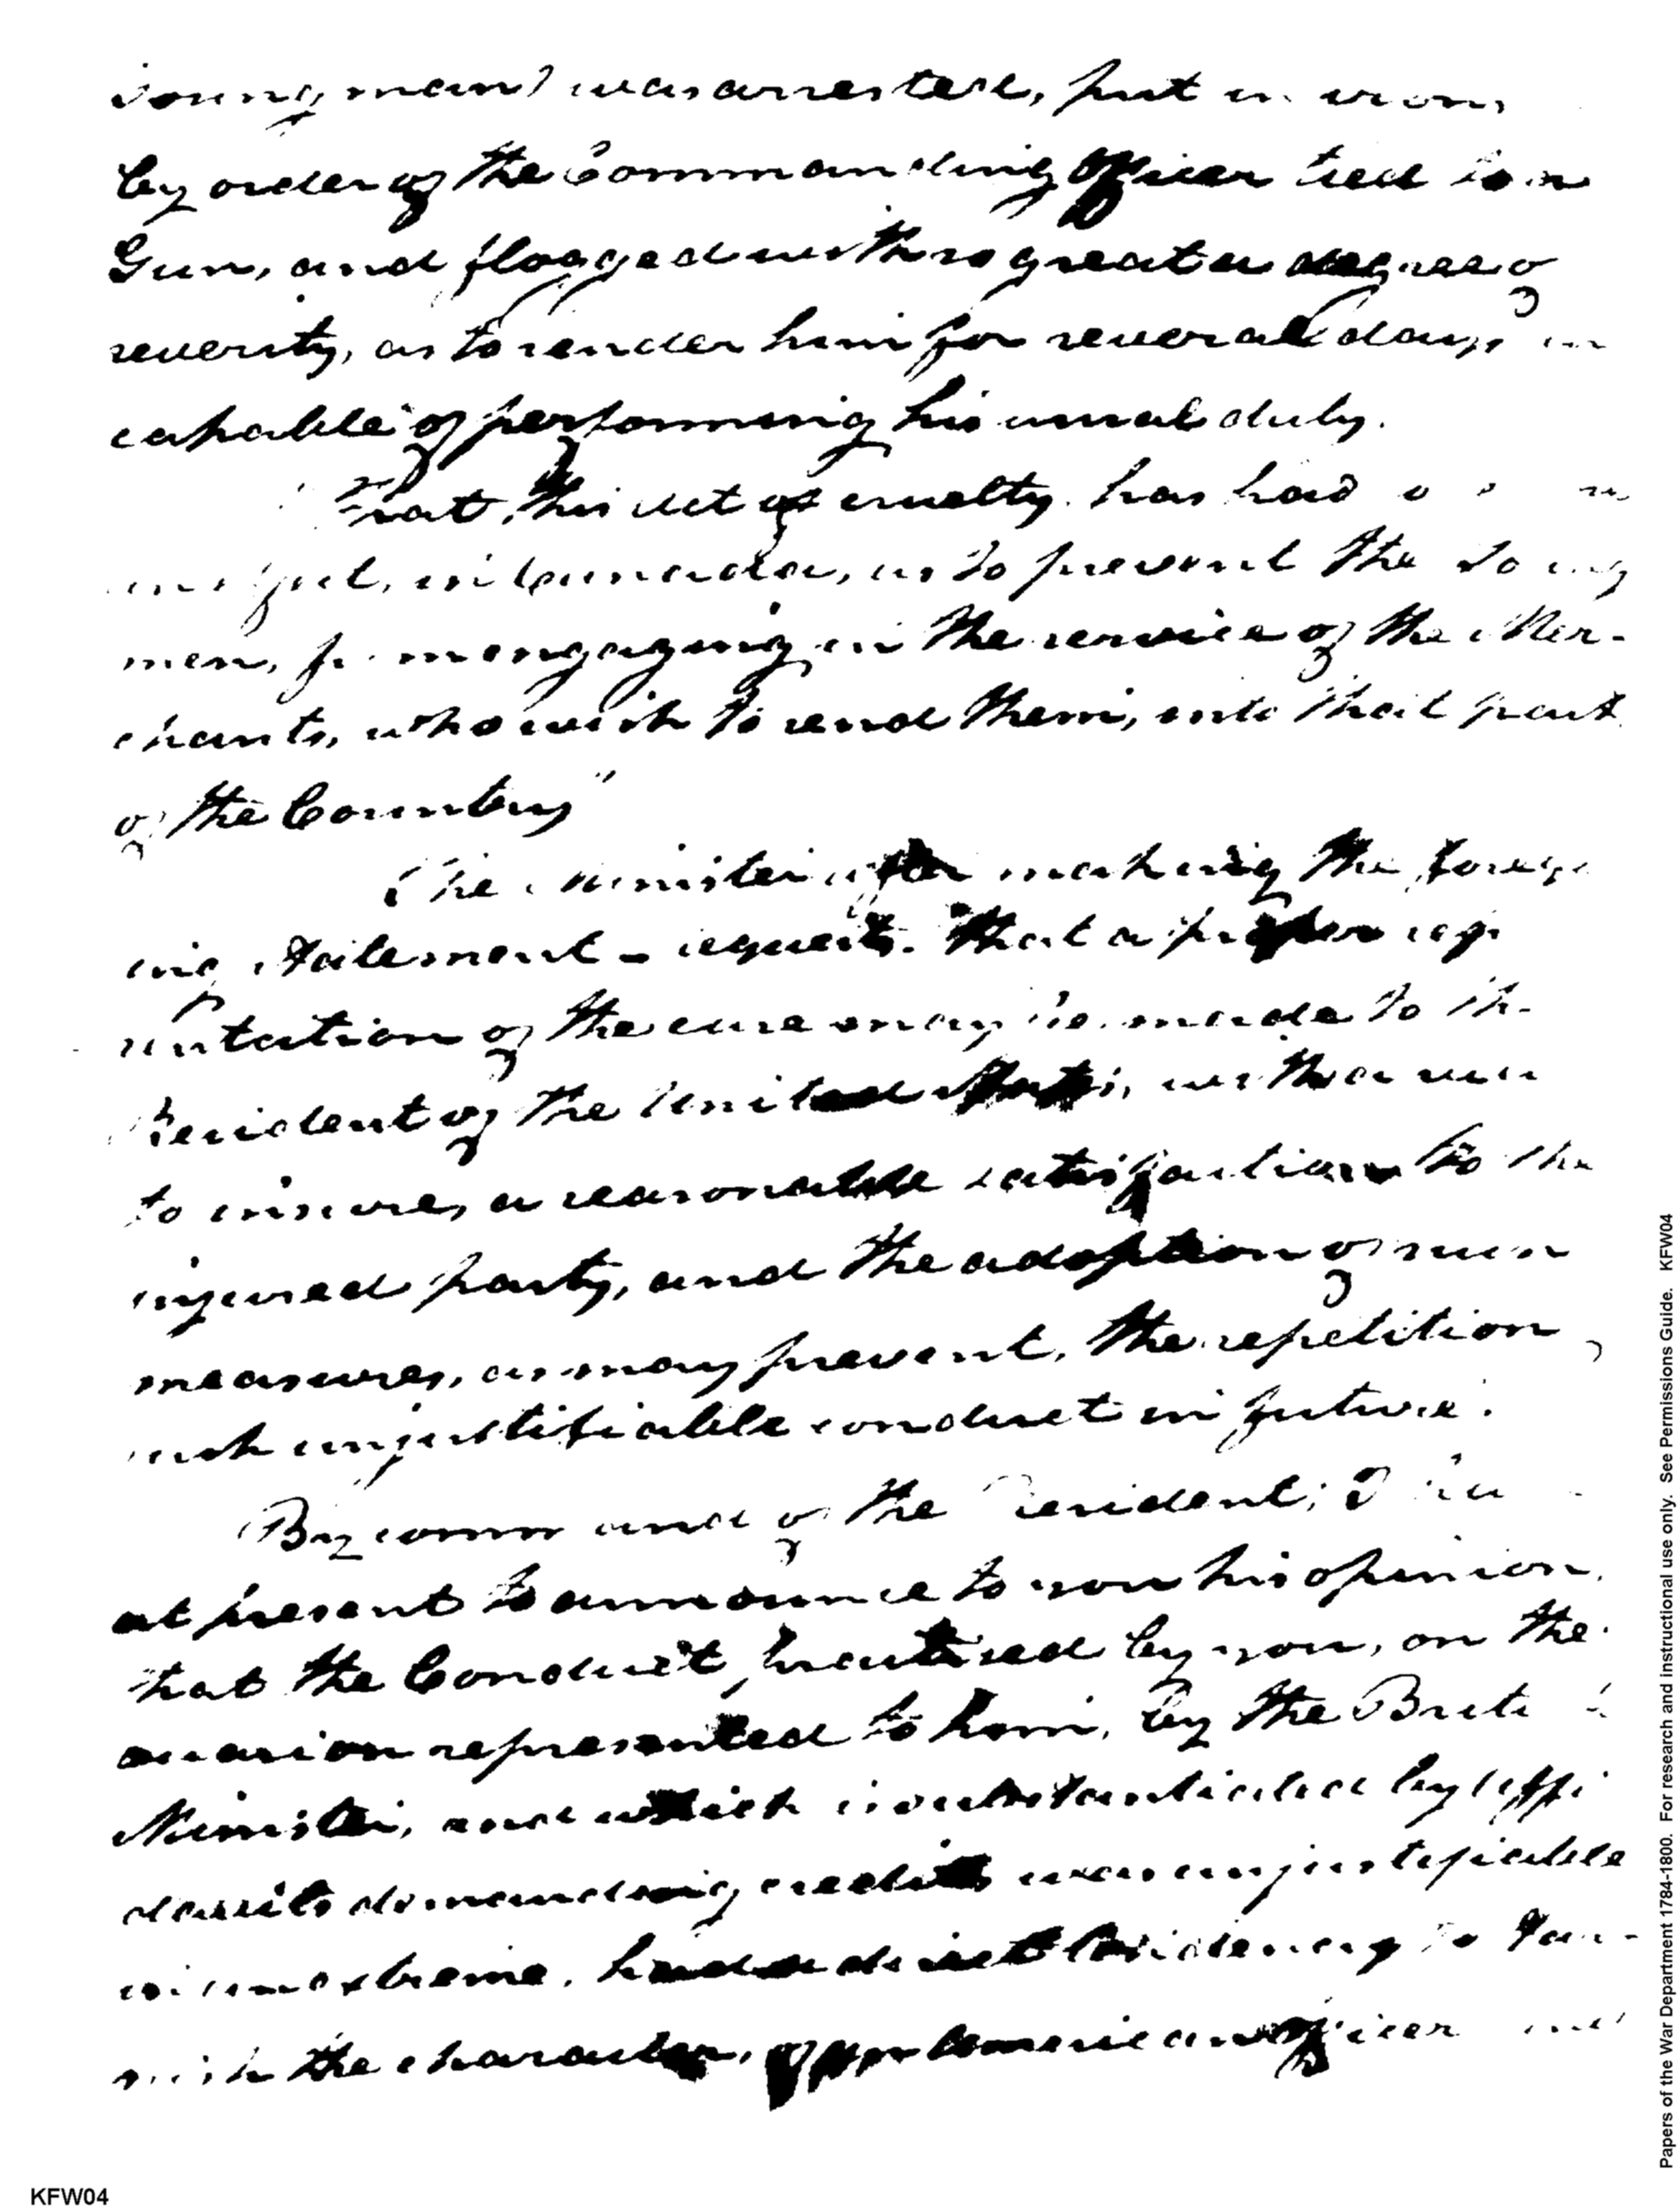 young man) was arrested, put in irons
by order of the Commanding Officer tied to a
Gun, and flogged with so great a degree of
severity, as to render him for several days in
capable of performing his usual duty.
That, this act of cruelty has had
in Canada, as to prevent the young
men, from engaging in the service of the Mer-
chants, who wish to send them, into that part
of the Country"
The Minister after making the forego
ing statement - requests. That a proper rep
sentation of the case may be made to the
President of the United States, with a view
to insure, a reasonable satisfaction to the
injured party, and the adoption of such
measures, as may prevent, the repetition of
such unjustifiable conduct in future.
By command of the President; I have
at present to announce to you his opinion,
that the Conduct, practised by you, on the
occasion represented to him, by the British
Minister, and which is substantiated by affi
davits demanding credit was unjustifiable
in an extreme, had a direct tendency to Tar-
nish the character, of an American officer and